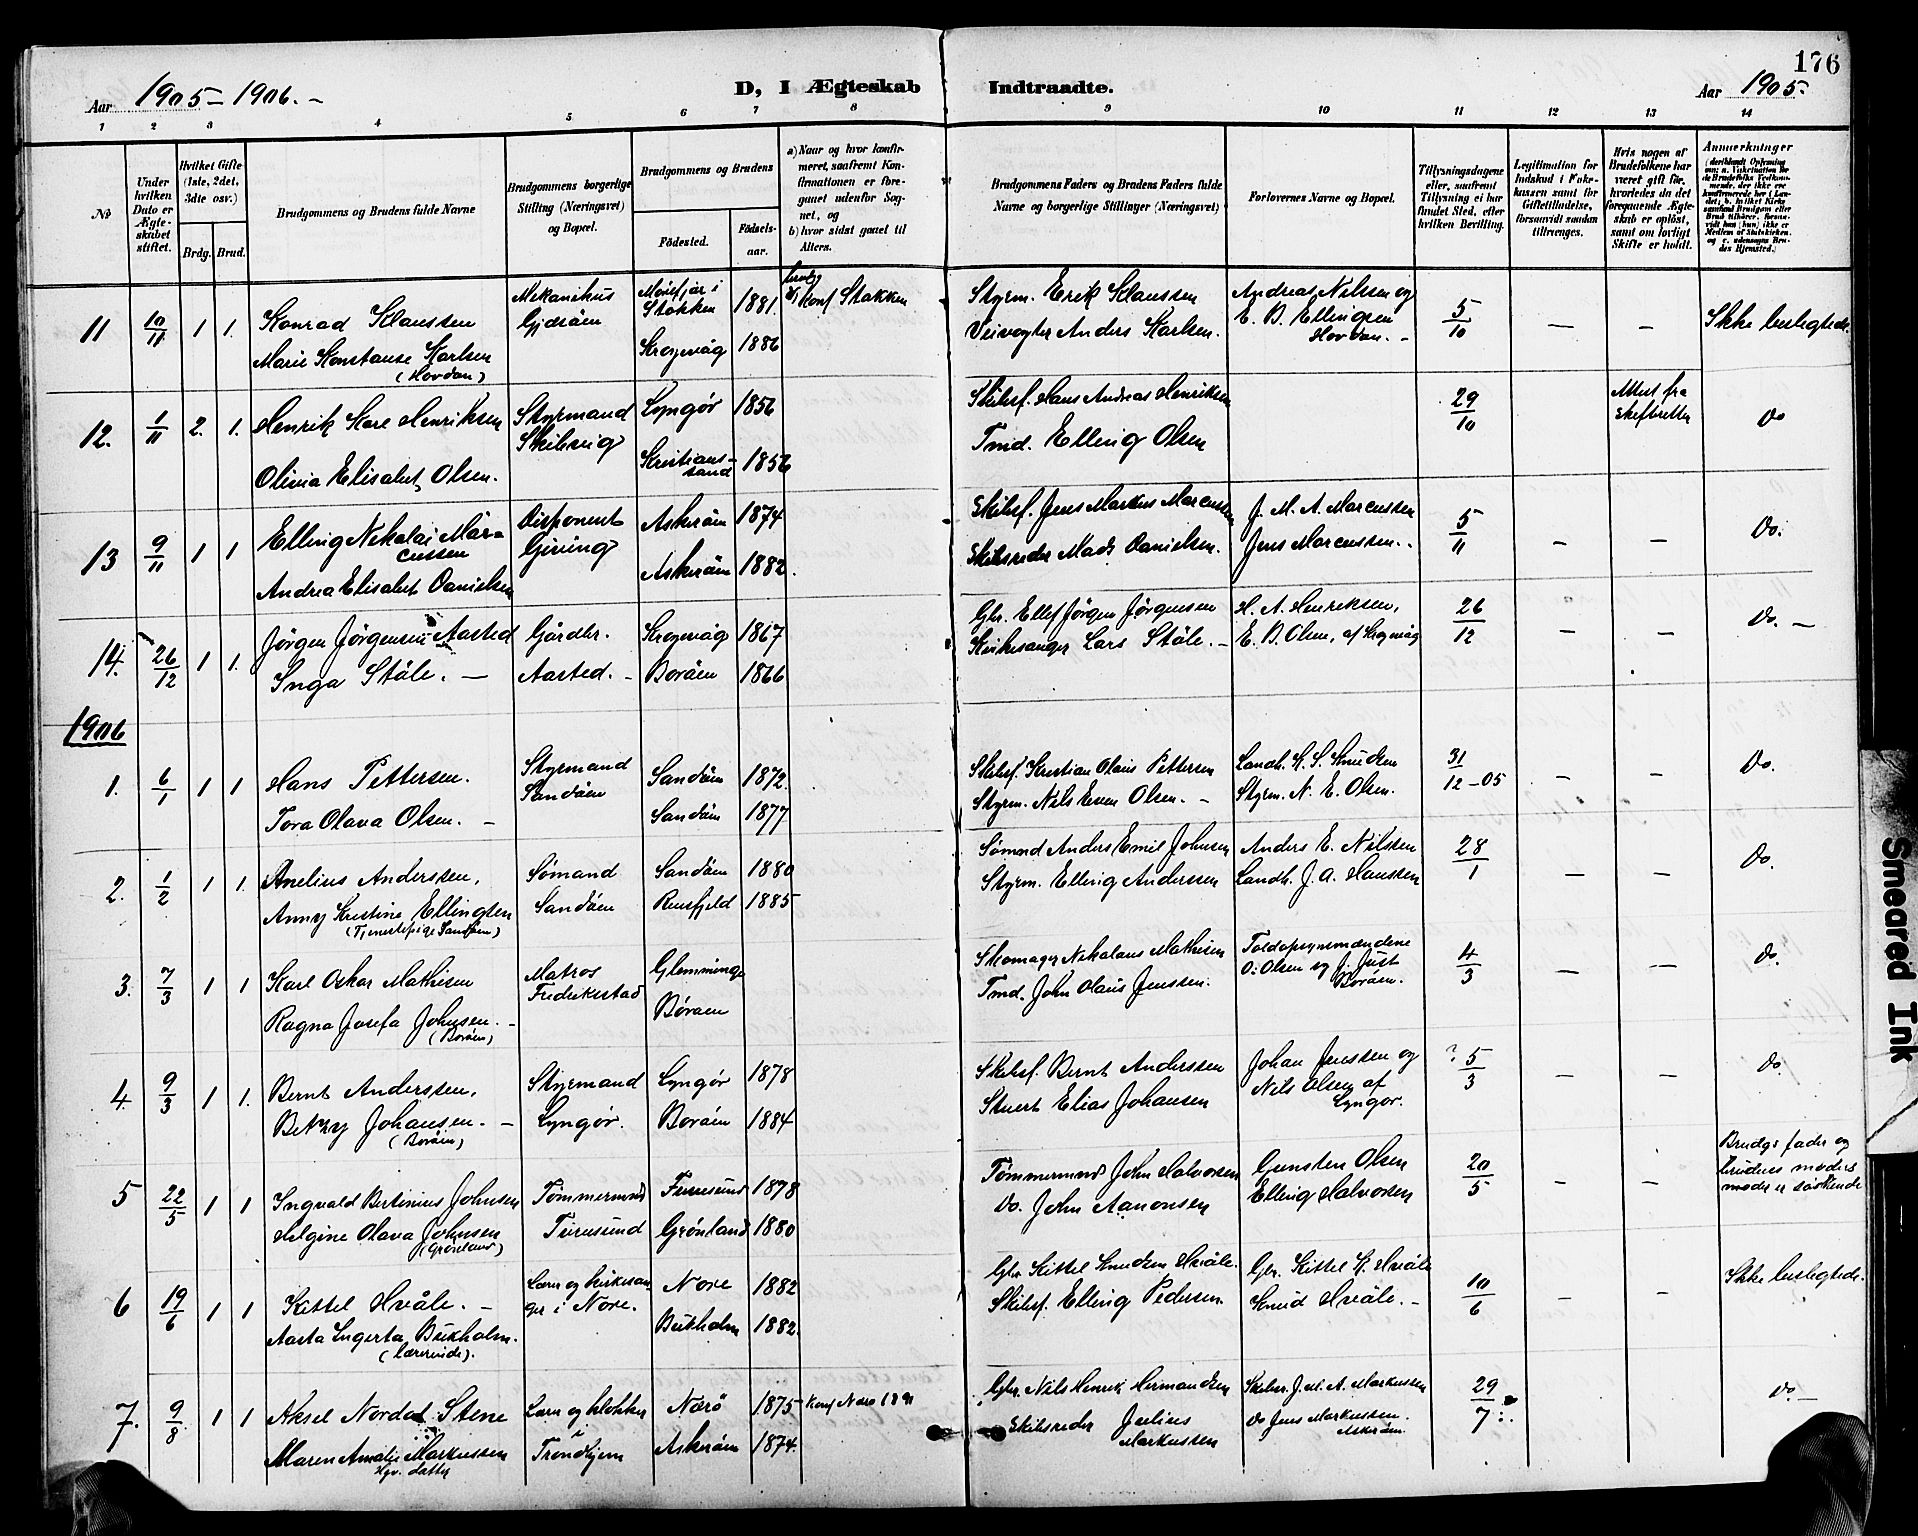 176
Aar 1905 – 1906. –
D, I Ægteskab Indtraadte.
Aar 1905.
1 2 3 4 5 6 7 8 9 10 11 12 13 14
No
Under hvilken Dato er Ægteskabet stiftet.
Hvilket Gifte (1ste, 2det, 3dte osv.)
Brdg. Brud.
Brudgommens og Brudens fulde Navne
Brudgommens borgerlige Stilling (Næringsvei) og Bopæl.
Brudgommens og Brudens
Fødested. Fødselsaar.
a) Naar og hvor konfirmeret, saafremt Konfirmationen er foregaaet udenfor Sognet, og
b) hvor sidst gaaet til Alters.
Brudgommens Faders og Brudens Faders fulde Navne og borgerlige Stillinger (Næringsvei)
Forlovernes Navne og Bopæl.
Tillysningsdagene eller, saafremt Tillysning ei har fundet Sted, efter hvilken Bevilling.
Legitimation for Indskud i Enkekassen samt for Giftetilladelse, forsaavidt saadan tiltrænges.
Hvis nogen af Brudefolkene har været gift før, hvorledes da det foregaaende Ægteskab er opløst, samt om lovligt Skifte er holdt.
Anmærkninger
11 10/11 1 1. Konrad Klaussen Mekanikus Gjdsöen Stokken 1881. Konf Stokken Styrm. Erik Klaussen Andreas Nilssen og E. B. Ellingsen Hovdan. – 5/10 — – Ikke beslegtede
Marie Konstanse Karlsen (Hovdan) Krogvåg 1886 Veivogter Anders Karlsen.
12. 1/11 2. 1. Henrik Kare Henriksen Styrmand Skibsvig Lyngör 1856 Skibsf. Hans Andreas Henriksen 29/10 Attest fra skifteretten Do
Olivia Elisabet Olsen. Kristianssand 1856 Tmd. Elling Olsen
13 9/11 1 1 Elling Nikolai Marcussen Disponent Giving Askeröen 1874 Skibsf. Jens Markus Marcussen J. M. A. Marcussen 5/11 – – Do.
Andrea Elisabet Danielsen Askeröen 1882. Skibsreder Mads Danielsen. Jens Marcussen.
14. 26/12 1 1. Jörgen Jörgensen Aasted Gårdbr. Krogvåg 1867 Gbr. Ellef Jörgen Jörgensen H. A. Henriksen, 26/12 – – Do. –
Inga Ståle. — Aasted. – Boröen 1866 Kirkesanger Lars Ståle. – E. B. Olsen, af Krogvåg
1906
1. 6/1 1 1 Hans Pettersen. Styrmand Sandöen Sandöen 1872. Skibsf. Kristian Olaus Pettersen Landh. K. S. Knudsen 31/12–05 – – Do.
Tora Olava Olsen. – Sandöen 1877 Styrm. Nils Even Olsen. – Styrm. N. E. Olsen.
2. 1/2 1 1. Anelius Anderssen, Sømand Sandöen 1880 Sømnd Anders Emil Johnsen Anders E. Nilsten 28/1 – – Do.
Anny Kristine Ellingsen (Tjenestepige Sandöen) Sandöen 1885 Styrm. Elling Anderssen Landh. J. A. Hanssen
3. 7/3 1 1 Karl Oskar Mathisen Matros Fredriksstad Glemminge Skomager Nikolaus Mathisen Toldopsynsmændene O. Olsen og J. Just Boröen. 4/3 – – Do.
Ragna Josefa Johnsen. – (Boröen) Böröen Tmd. John Olaus Jenssen.
4. 9/3 1 1. Bernt Anderssen, Styrmand Lyngör 1878 Skibsf. Bernt Anderssen Johan Jenssen og ? 5/3 – – Do.
Betzy Johansen. – (Boröen) Lyngör. Boröen 1884 Stuert Elias Johansen Nils Olsen af Lyngör.
5 22/5 1 1 Ingvald Bertinius Johnsen Tömmermand Furesund 1878 Tömmermand John Halvorsen Gunsten Olsen 20/5 – – Brudgs fader og brudens moders moder er söskende
Helgine Olava Johnsen (Grönland) Furesund Grönland 1880 Do. John Aanonsen Elling Halvorsen
6 19/6 1 1 Kittel Hvåle. – Lærer og kirkesanger i Nore. Nore 1882 Gbr Kittel Knudsen Hvåle. Gbr. Kittel K. Hvåle 10/6 – – Ikke beslegtede.
Aasta Ingerta Buxholm. (lærerinde). Buxholm 1882. Skibsf. Elling Pedersen. Knud Hvåle. –
7. 9/8 1 1 Aksel Nordal Stene Lærer og klokker i Nærö 1875 Konf Nærö 1891 Gbr. Nils Henrik Hermandsen Skibsr. J. M. A. Markussen 29/7. Do. –
Maren Amalie Markussen Hgv. datter Trondhjem Askeröen 1874. Skibsreder Julius Markussen Do Jens Markussen. Askeröen.
Smeared Ink